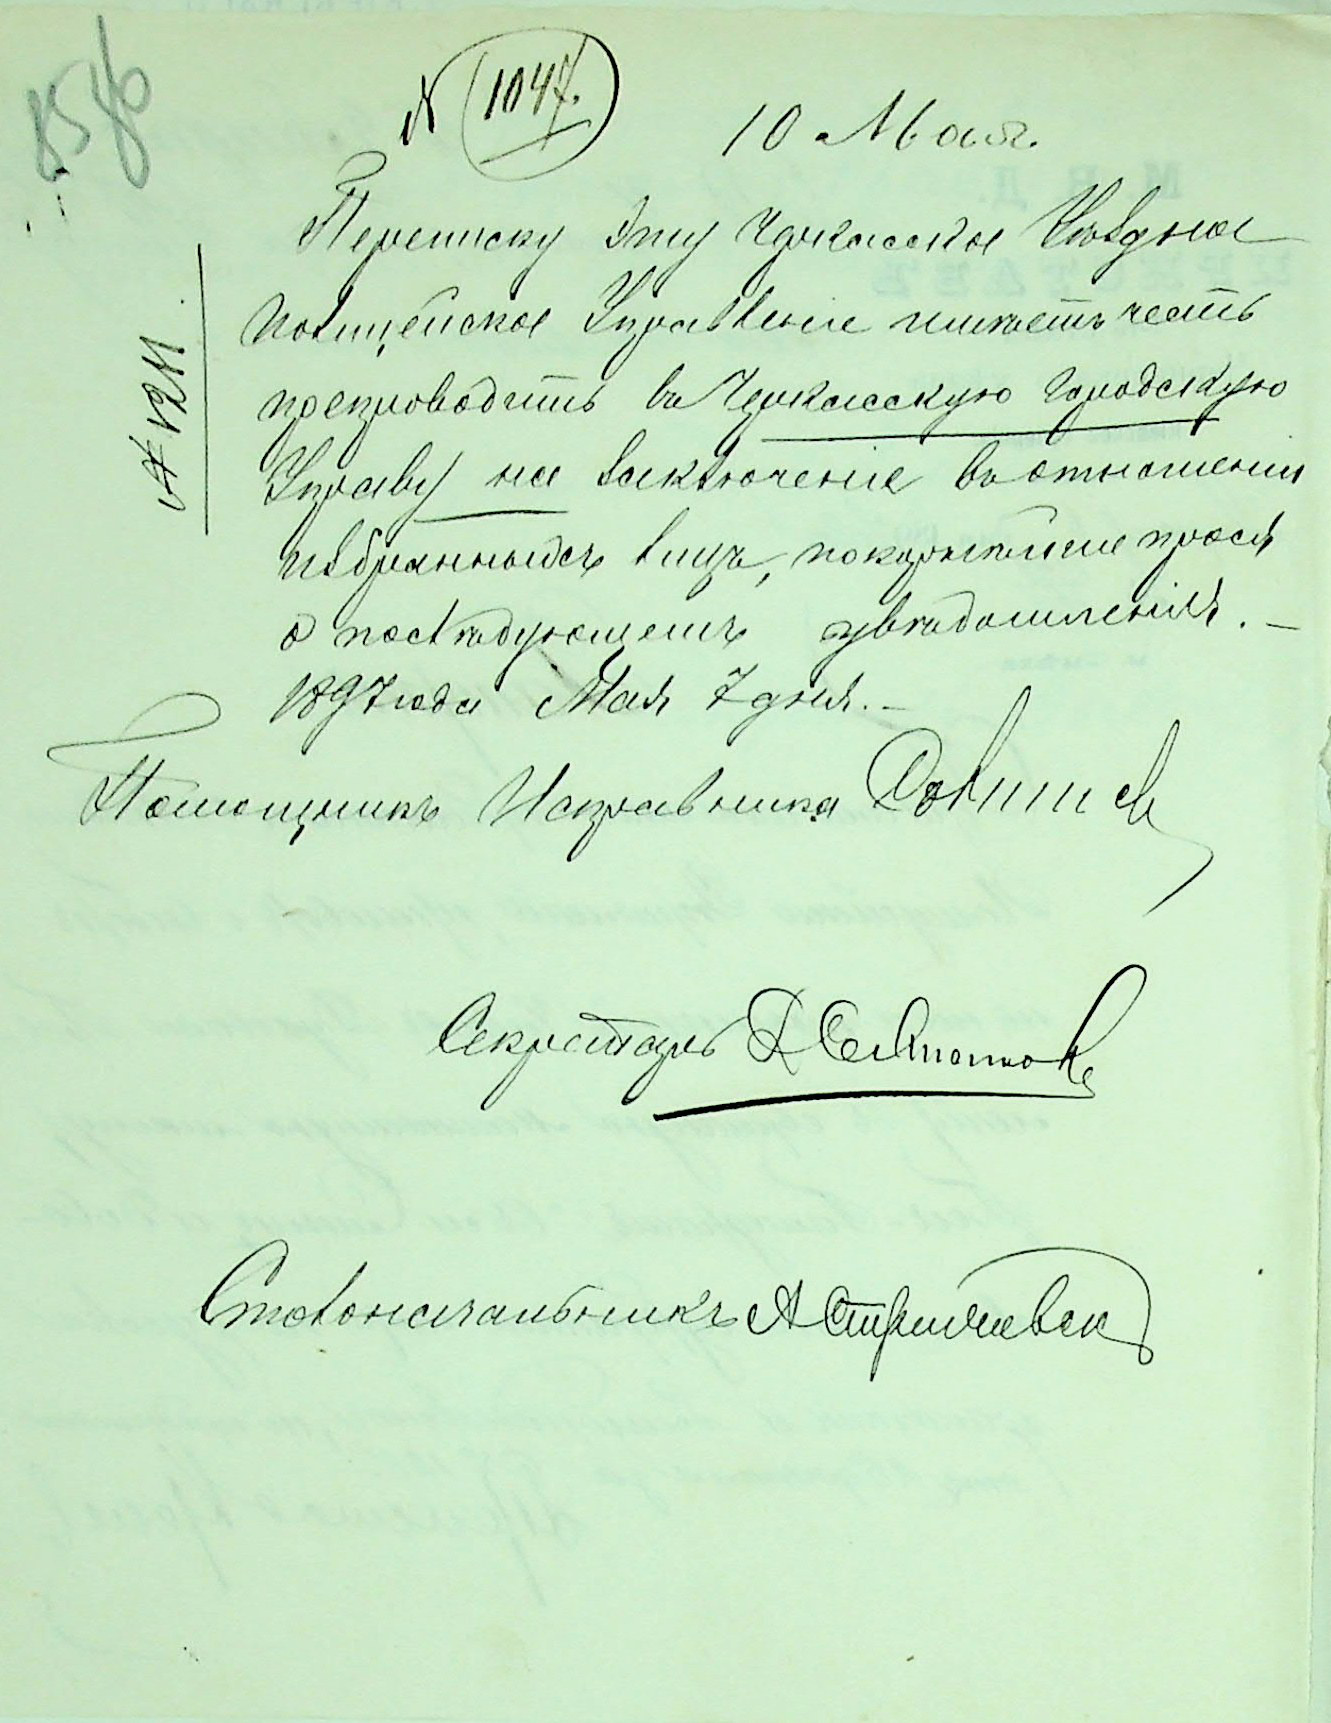 № 1047.
10 Мая.
Переписку эту Черкасское Уѣздное
Полицейское Управленіе имѣетъ честь
препроводить въ Черкасскую Городскую
Управу на заключеніе въ отношеніи
избранныхъ лицъ, покорнѣйше прося
о послѣдующемъ увѣдомленіи. –
1897 года Мая 7 дня. –
Помощникъ Исправника
Секретарь
Столоначальникъ А